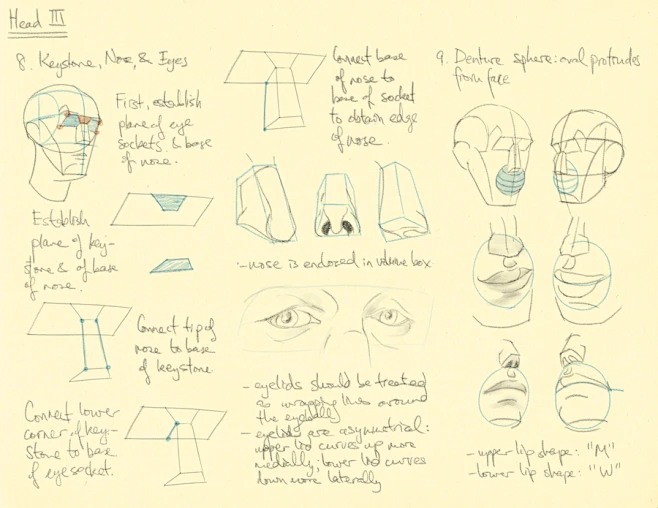 Head III
8. Keystone, Nose, & Eyes
First, establish
plane of eye
sockets & base
of nose.
Establish
plane of key-
stone & of base
of nose.
Connect tip of
nose to base
of keystone
Connect lower
corner of key-
stone to base
of eye socket.
Connect base
of nose to
base of socket
to obtain edge
of nose.
- nose is enclosed in volume box
- eyelids should be treated
as wrapping lines around
the eyeball
- eyelids are asymmetrical:
upper lid curves up more
medially; lower lid curves
down more laterally
9. Denture sphere: oval protrudes
from face
- upper lip shape: "M"
- lower lip shape: "W"